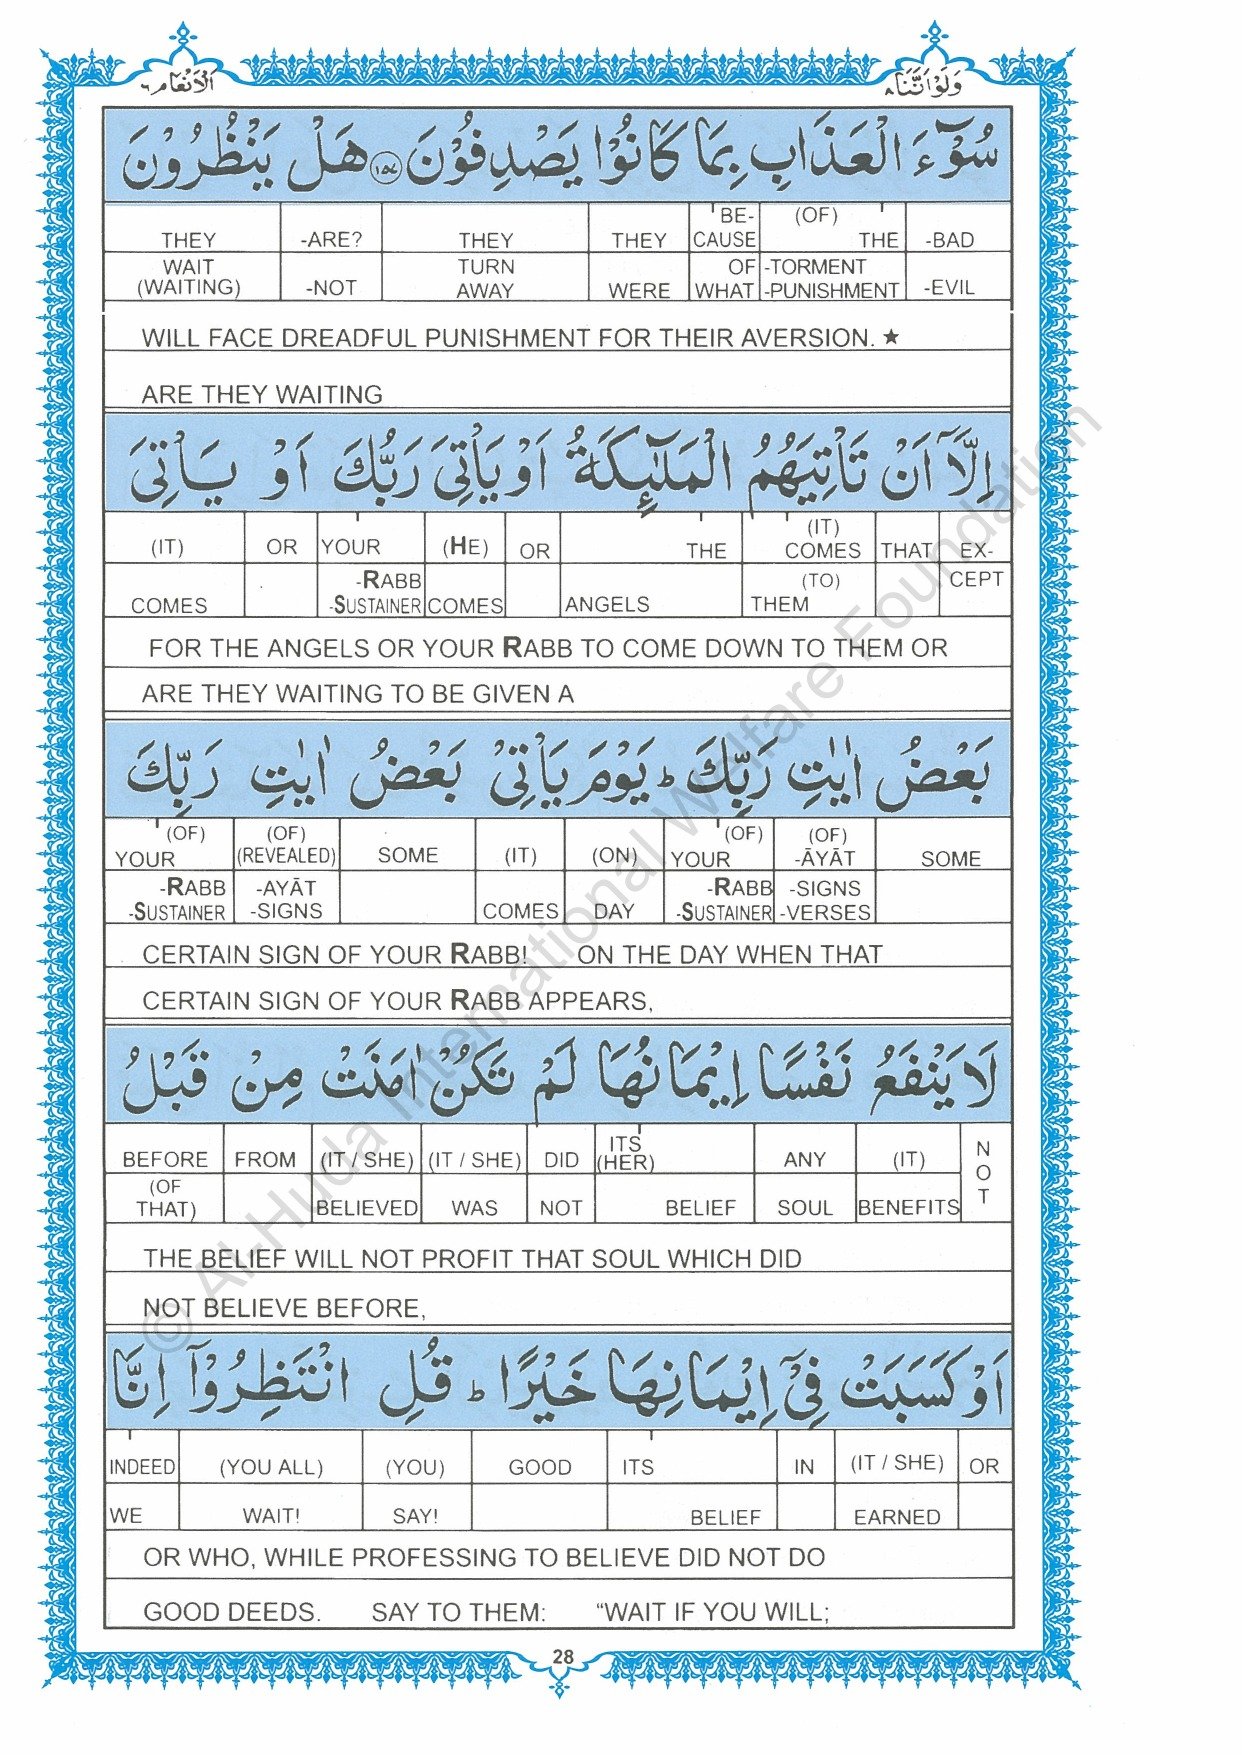 الانعام ٦
ولو اننا ٨
سُوْٓءَ الْعَذَابِ بِمَا كَانُوْا يَصْدِفُوْنَ ١٥٧ هَلْ يَنْظُرُوْنَ
THEY -ARE? THEY THEY BE-CAUSE (OF) THE -BAD
WAIT (WAITING) -NOT TURN AWAY WERE OF WHAT -TORMENT -PUNISHMENT -EVIL
WILL FACE DREADFUL PUNISHMENT FOR THEIR AVERSION. ★
ARE THEY WAITING
اِلَّآ اَنْ تَاْتِيَهُمُ الْمَلٰٓئِكَةُ اَوْ يَاْتِيَ رَبُّكَ اَوْ يَاْتِيَ
(IT) OR YOUR (HE) OR THE (IT) COMES THAT EX-
COMES -RABB -SUSTAINER COMES ANGELS (TO) THEM CEPT
FOR THE ANGELS OR YOUR RABB TO COME DOWN TO THEM OR
ARE THEY WAITING TO BE GIVEN A
بَعْضُ اٰيٰتِ رَبِّكَ ؕ يَوْمَ يَاْتِيْ بَعْضُ اٰيٰتِ رَبِّكَ
(OF) YOUR (OF) (REVEALED) SOME (IT) (ON) (OF) YOUR (OF) -ĀYĀT SOME
-RABB -SUSTAINER -AYĀT -SIGNS COMES DAY -RABB -SUSTAINER -SIGNS -VERSES
CERTAIN SIGN OF YOUR RABB! ON THE DAY WHEN THAT
CERTAIN SIGN OF YOUR RABB APPEARS,
لَا يَنْفَعُ نَفْسًا اِيْمَانُهَا لَمْ تَكُنْ اٰمَنَتْ مِنْ قَبْلُ
BEFORE FROM (IT / SHE) (IT / SHE) DID ITS (HER) ANY (IT) NOT
(OF THAT) BELIEVED WAS NOT BELIEF SOUL BENEFITS
THE BELIEF WILL NOT PROFIT THAT SOUL WHICH DID
NOT BELIEVE BEFORE,
اَوْ كَسَبَتْ فِيْٓ اِيْمَانِهَا خَيْرًا ؕ قُلِ انْتَظِرُوْٓا اِنَّا
INDEED (YOU ALL) (YOU) GOOD ITS IN (IT / SHE) OR
WE WAIT! SAY! BELIEF EARNED
OR WHO, WHILE PROFESSING TO BELIEVE DID NOT DO
GOOD DEEDS. SAY TO THEM: “WAIT IF YOU WILL;
28
© Al-Huda International Welfare Foundation